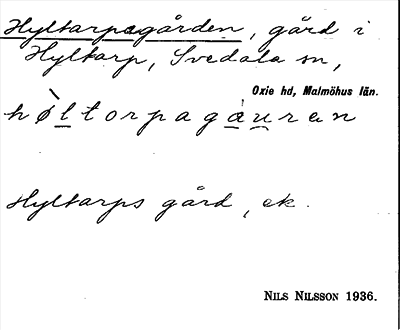 Hyltarpagården, gård i
Hyltarp, Svedala sn,
Oxie hd, Malmöhus län.
hø̀ltorpagáuran
Hyltarps gård, ek.
NILS NILSSON 1936.